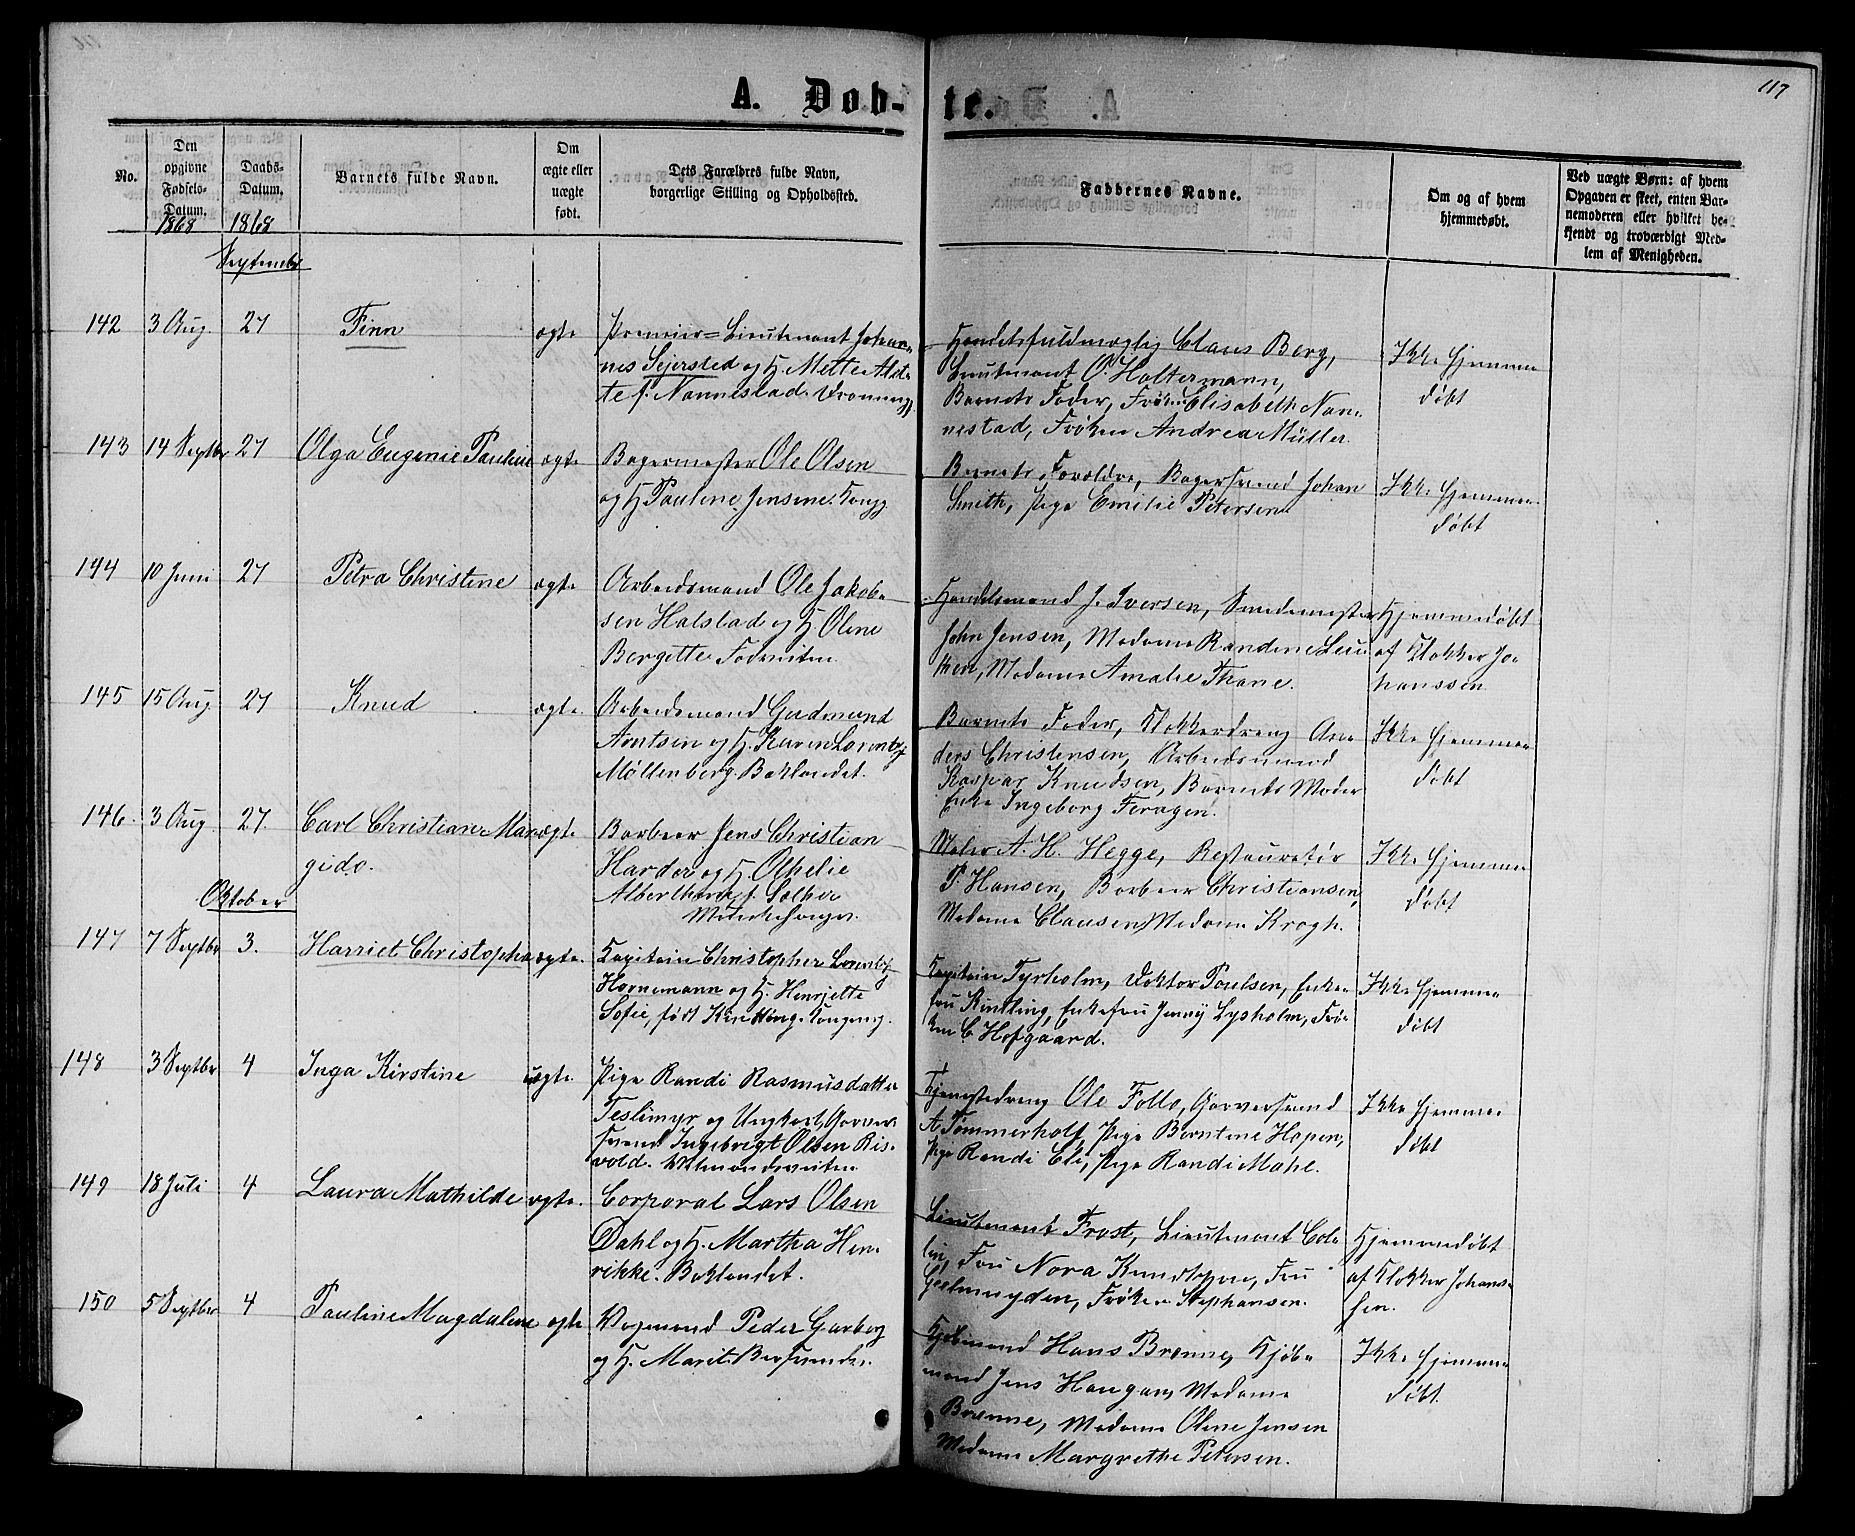 117
A. Døb-te.
No.
Den opgivne Fødsels-Datum.
1868
Daabs-Datum.
1868
Barnets fulde Navn.
Om ægte eller uægte født.
Dets Forældres fulde Navn, borgerlige Stilling og Opholdssted.
Faddernes Navne.
Om og af hvem hjemmedøbt.
Ved uægte Børn: af hvem
Opgaven er skeet, enten Bar-
nemoderen eller hvilket be-
kjendt og troværdigt Med-
lem af Menigheden.
Septembr
142 3 Aug. 27 Finn ægte
Premier-Lieutenant Johan-
nes Sejersted og H. Mette
te f. Nannestad.
Handelsfuldmægtig Claus Berg,
Lieutenant O. Holtermann,
Barnets Fader, Frøken Elisabeth Nan-
nestad, Frøken Andrea Müller.
Ikke hjemme
døbt
143 14 Septbr 27 Olga Eugenie Pauline ægte
Bagermester Ole Olsen
og H. Pauline Jensine.
Barnets Forældre, Bagersvend Johan
Smith, Pige Emilie Petersen
Ikke hjemme-
døbt
144 10 Juni 27 Petra Christine ægte
Arbeidsmand Ole Jakob-
sen Halstad og H. Oline
Bergette
Handelsmand J. Iversen, Smedemester
John Jensen, Madame Randine
Madame Amalie Thane.
Hjemmedøbt
af Klokker Jo-
hanssen.
145 15 Aug 27 Knud ægte.
Arbeidsmand Gudmund
Arntsen og H. Karen
Møllenberg. Baklandet.
Barnets Fader, Klokkerdreng An-
ders Christensen, Arbeidsmand
Kaspar Knudsen, Barnets Moder
Enke Ingeborg Feragen.
Ikke hjemme-
døbt
146. 3 Aug 27. Carl Christian Mar- ægte
gido.
Barbeer Jens Christian
Harder og H. Othelie
Maler A. H. Hegge, Restauratør
P. Hansen, Barbeer Christiansen,
Madame Clausen, Madame Krogh.
Ikke hjemme
døbt
Oktober
147 7 Septbr 3. Harriet Christopha ægte.
Kapitain Christopher
Hornemann og H. Henrjette
Sofie, født
Kapitain Tyrholm, Doktor Poulsen, Enke-
fru Enkefru Jenny Lysholm, Frø-
ken C Hofgaard.
Ikke hjemme
døbt
148 3 Septbr 4 Inga Kirstine uægte.
Pige Randi Rasmusdatter
Teslimyr og Ungkarl, Garver-
svend Ingebrigt Olsen Ris-
vold.
Tjenestedreng Ole Follo, Garversvend
A Tømmerholt, Pige Berntine Hopen,
Pige Randi Eli, Pige Randi Mohl.
Ikke hjemme-
døbt
149 18 Juli 4 Laura Mathilde ægte.
Corporal Lars Olsen
Dahl og H. Martha Hen-
rikke. Baklandet.
Lieutenant Frost, Lieutenant
Fru Nora Fru
Geelmuyden, Frøken Stephansen.
Hjemmedøbt
af Klokker Johans-
sen.
150 5 Septbr 4 Pauline Magdalene ægte
Vognmand Peder Garberg
og H. Marit.
Kjøbmand Hans Brønne, Kjøb-
mand Jens Haugan, Madame
Brønne, Madame Oline Jensen
Madame Margrethe Petersen.
Ikke hjemme-
døbt.